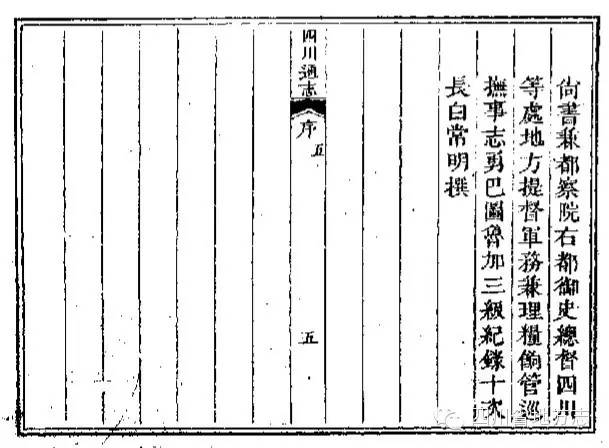 尙書兼都察院右都御史總督四川
等處地方提督軍務兼理糧餉管巡
撫事志勇巴圖魯加三級紀錄十次
長白常明撰
四川通志
序
五
五
四川省地方志